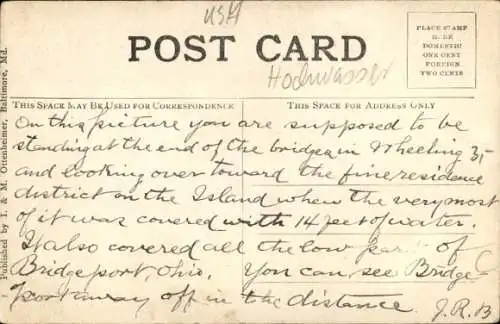 USA
POST CARD
Hochwasser
PLACE STAMP
HERE
DOMESTIC
ONE CENT
FOREIGN
TWO CENTS
THIS SPACE MAY BE USED FOR CORRESPONDENCE
THIS SPACE FOR ADDRESS ONLY
On this picture you are supposed to be
standing at the end of the bridge in Wheeling
and looking over toward the fine residence
district on the Island when the very most
of it was covered with 14 feet of water.
It also covered all the low part of
Bridgeport, Ohio. You can see Bridge-
port away off in the distance. J.R.B
Published by I. & M. Ottenheimer, Baltimore, Md.